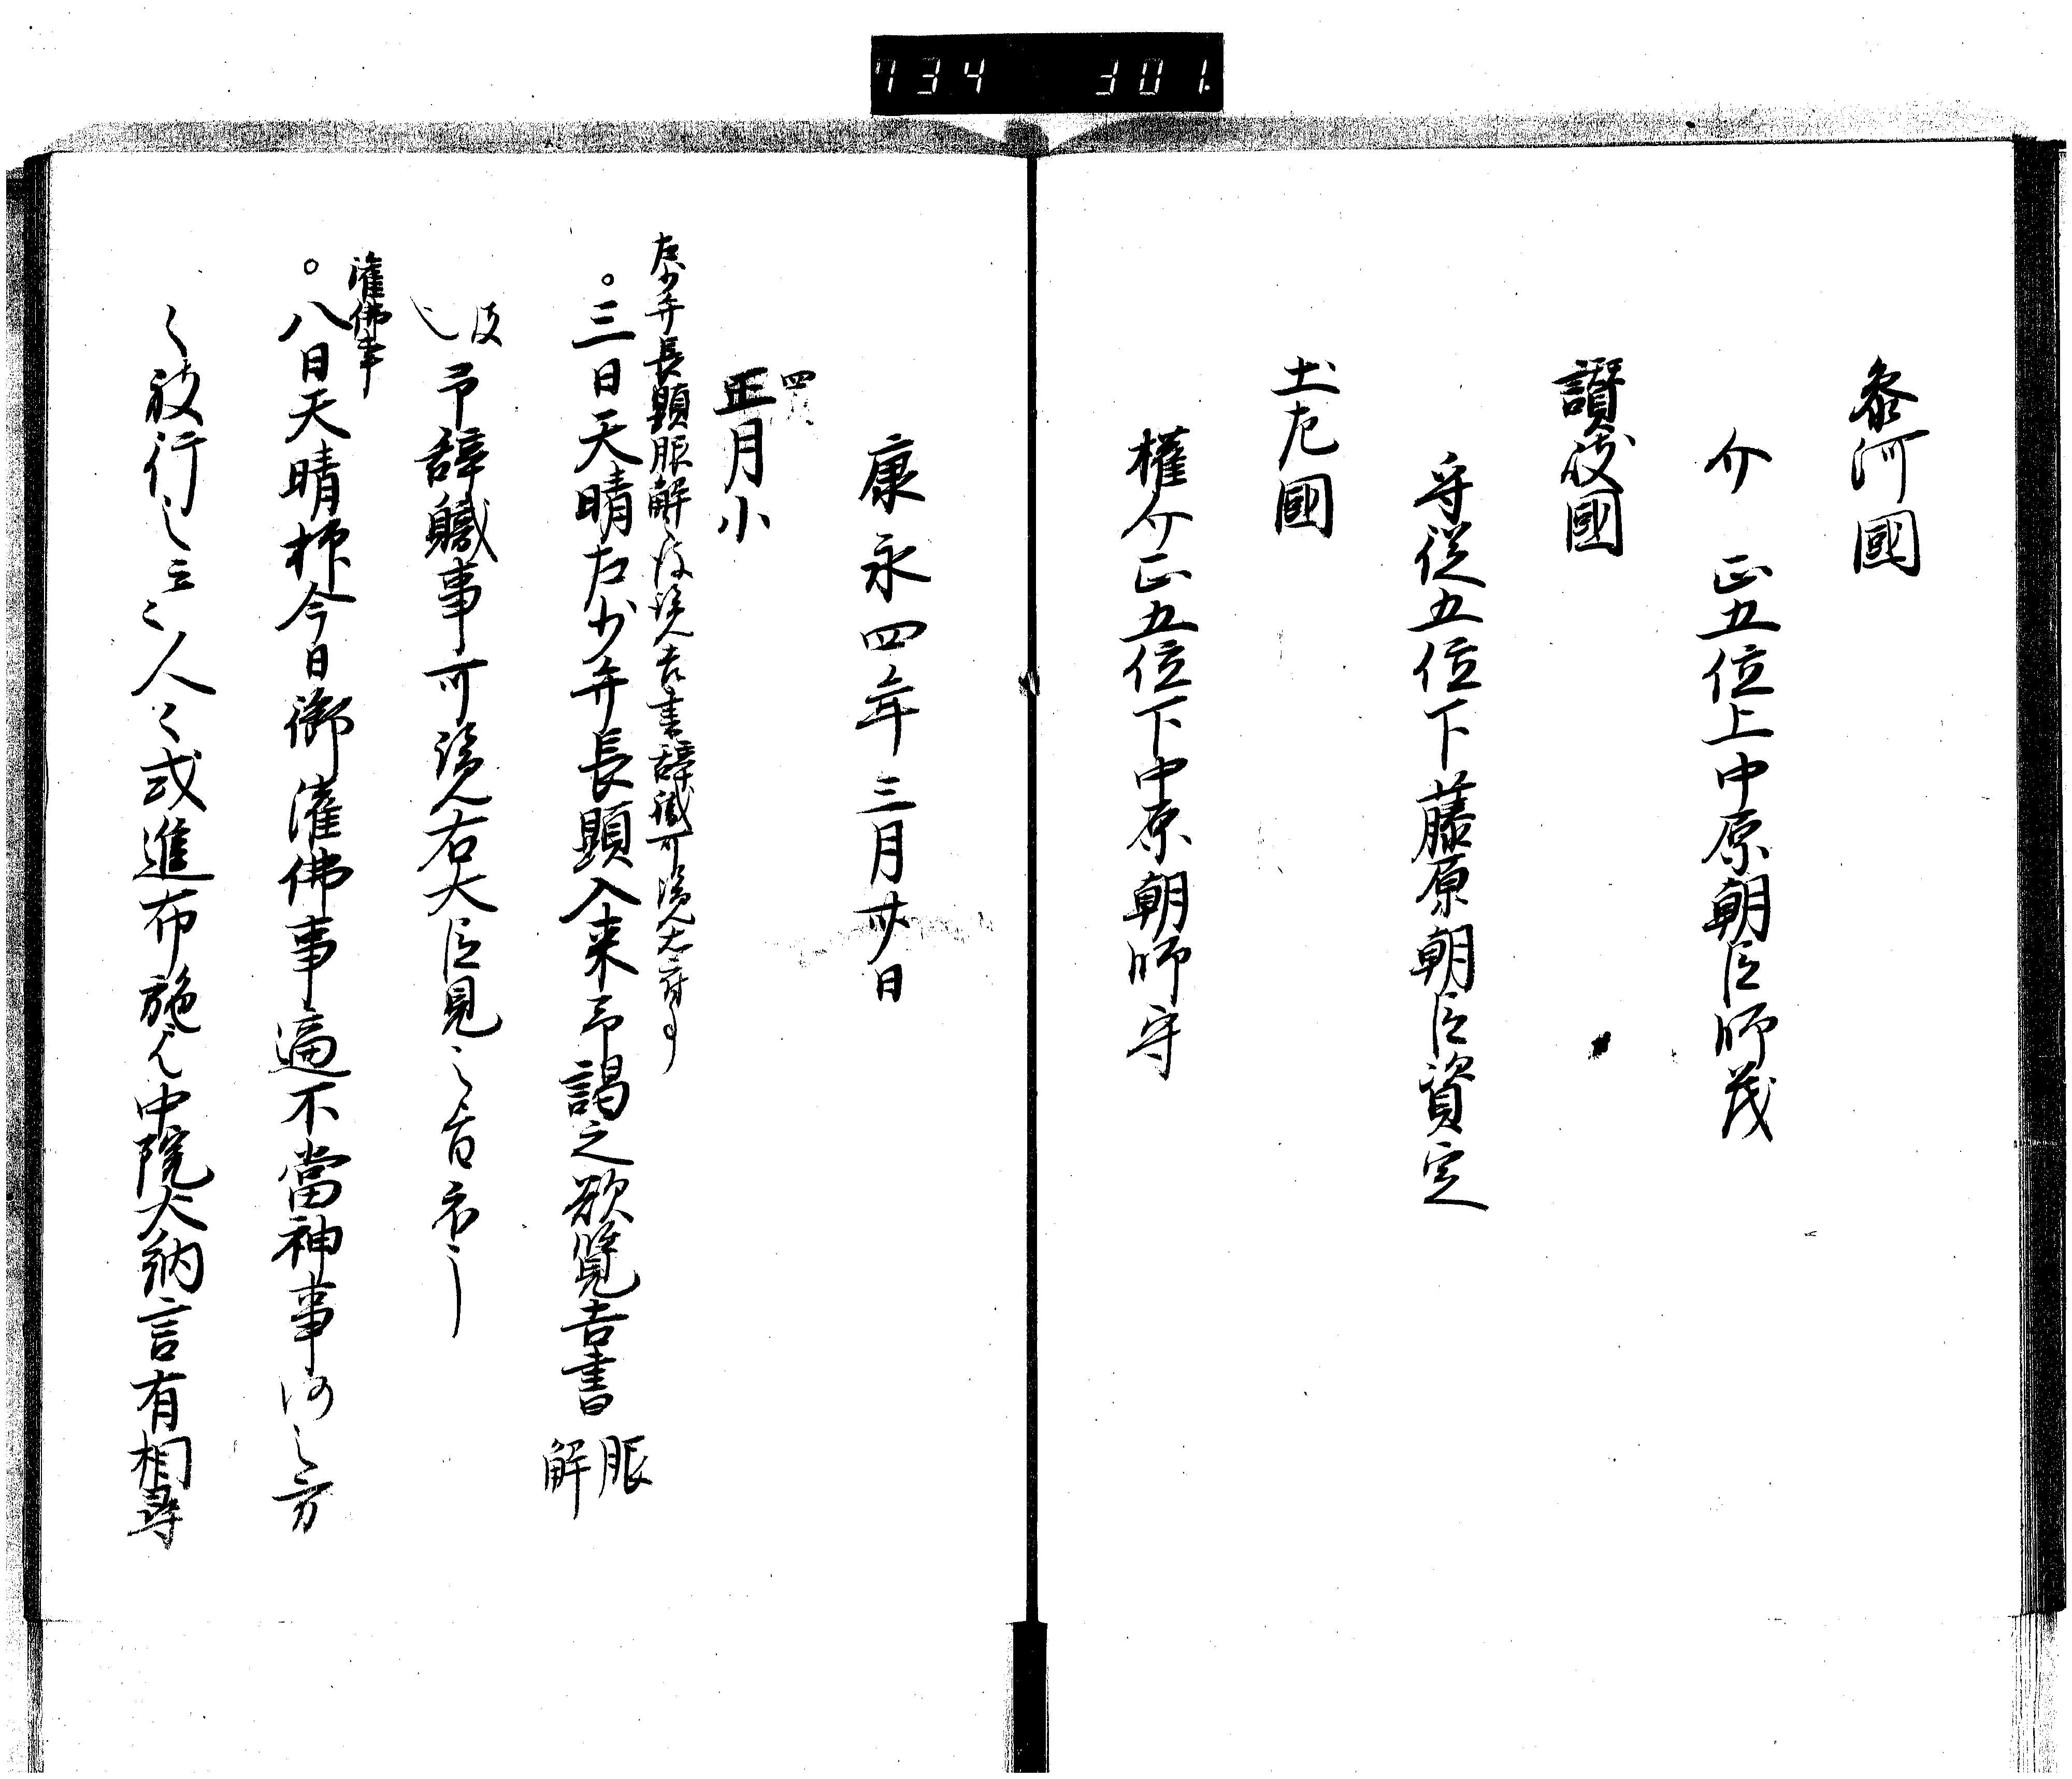 734 301.
参河國
介 正五位上中原朝臣師茂
讃岐國
守従五位下藤原朝臣資定
土左國
権介正五位下中原朝師守
康永四年三月廿日
四
正月小
左少弁長顕服解之後覧吉書辞職可覧右府事
三日天晴左少弁長顕入来予謁之欲覧吉書服解
後也予辞職事可覧右大臣見之旨示之
灌佛事
八日天晴抑今日御灌佛事適不當神事仍之方
々被行之云々人々或進布施云々中院大納言有相尋